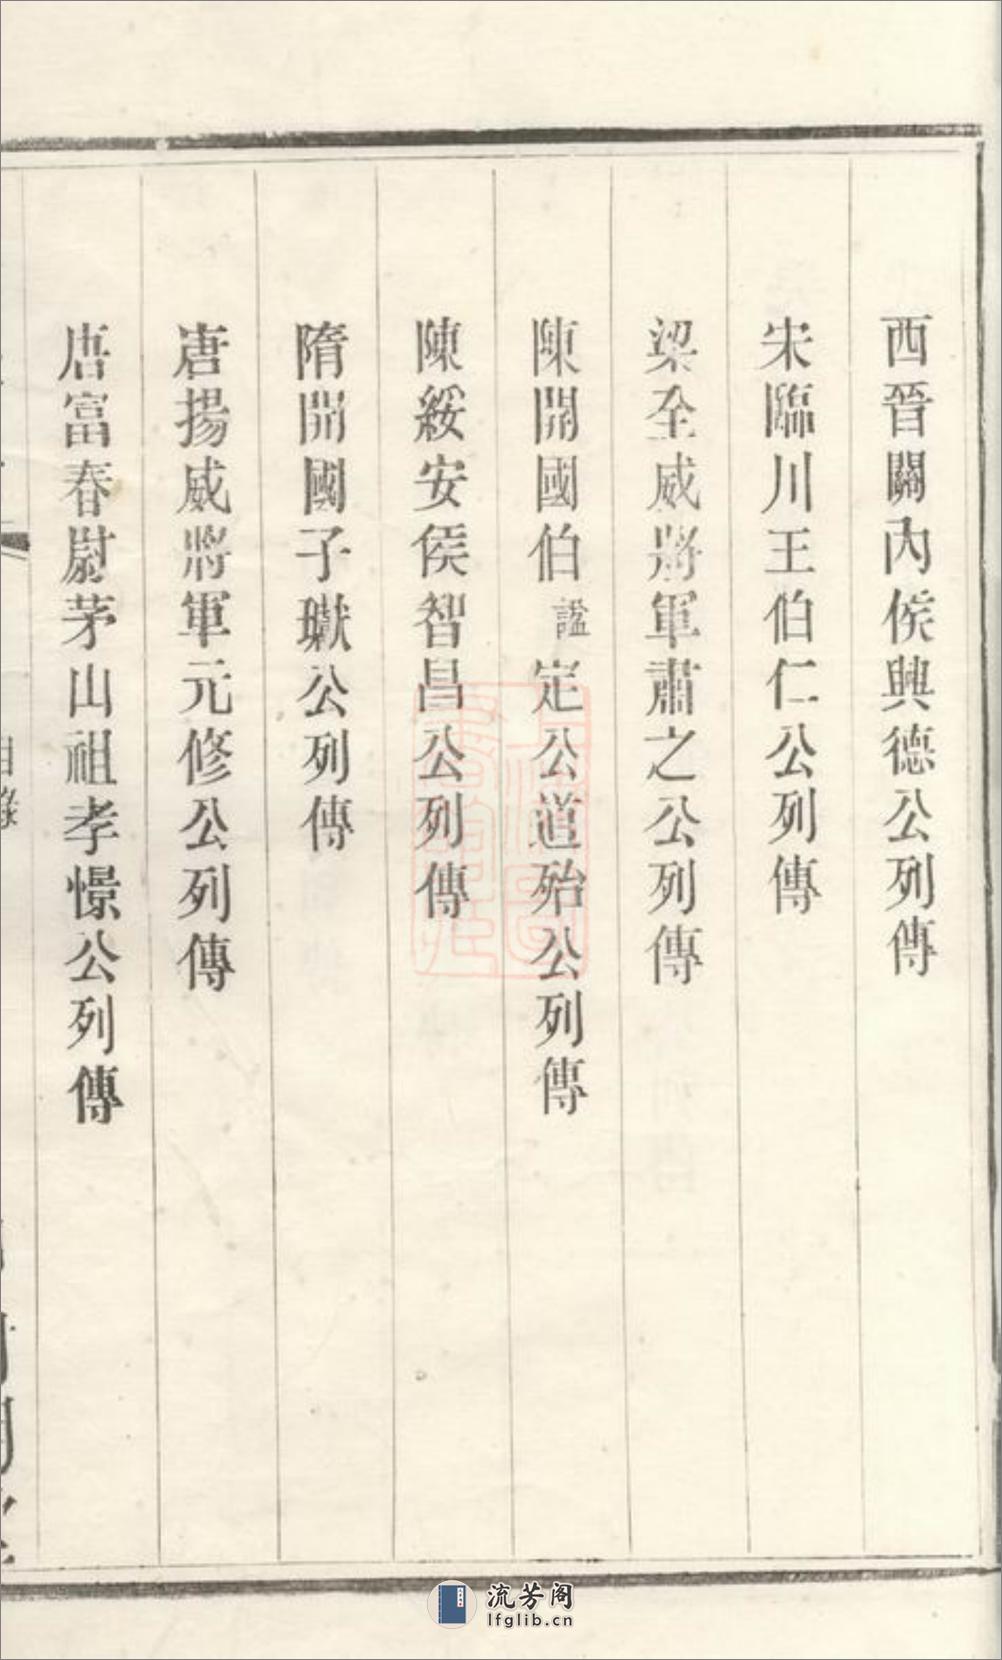 西晉關內侯興德公列傳
宋臨川王伯仁公列傳
梁全威將軍肅之公列傳
陳開國伯謚定公道殆公列傳
陳綏安侯智昌公列傳
隋開國子瓛公列傳
唐揚威將軍元修公列傳
唐富春尉茅山祖孝憬公列傳
目錄
流芳阁
lfglib.cn